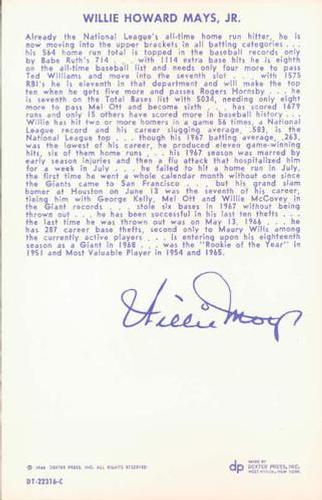 WILLIE HOWARD MAYS, JR.
Already the National League's all-time home run hitter, he is
now moving into the upper brackets in all batting categories . . .
his 564 home run total is topped in the baseball records only
by Babe Ruth's 714 . . . with 1114 extra base hits he is eighth
on the all-time baseball list and needs only four more to pass
Ted Williams and move into the seventh slot . . . with 1575
RBI's he is eleventh in that department and will make the top
ten when he gets five more and passes Rogers Hornsby . . . he
is seventh on the Total Bases list with 5034, needing only eight
more to pass Mel Ott and become sixth . . . has scored 1679
runs and only 15 others have scored more in baseball history . . .
Willie has hit two or more homers in a game 56 times, a National
League record and his career slugging average, .583, is the
National League top . . . though his 1967 batting average, .263,
was the lowest of his career, he produced eleven game-winning
hits, six of them home runs . . . his 1967 season was marred by
early season injuries and then a flu attack that hospitalized him
for a week in July . . . he failed to hit a home run in July,
the first time he went a whole calendar month without one since
the Giants came to San Francisco . . . but his grand slam
homer at Houston on June 13 was the seventh of his career,
tieing him with George Kelly, Mel Ott and Willie McCovey in
the Giant records . . . stole six bases in 1967 without being
thrown out . . . he has been successful in his last ten thefts . . .
the last time he was thrown out was on May 13, 1966 . . . he
has 287 career base thefts, second only to Maury Wills among
the currently active players . . . is entering upon his eighteenth
season as a Giant in 1968 . . . was the "Rookie of the Year" in
1951 and Most Valuable Player in 1954 and 1965.
Willie Mays
© 1968 DEXTER PRESS, INC. ALL RIGHTS RESERVED
DT-22316-C
dp
MADE BY
DEXTER PRESS, INC.
WEST NYACK, NEW YORK